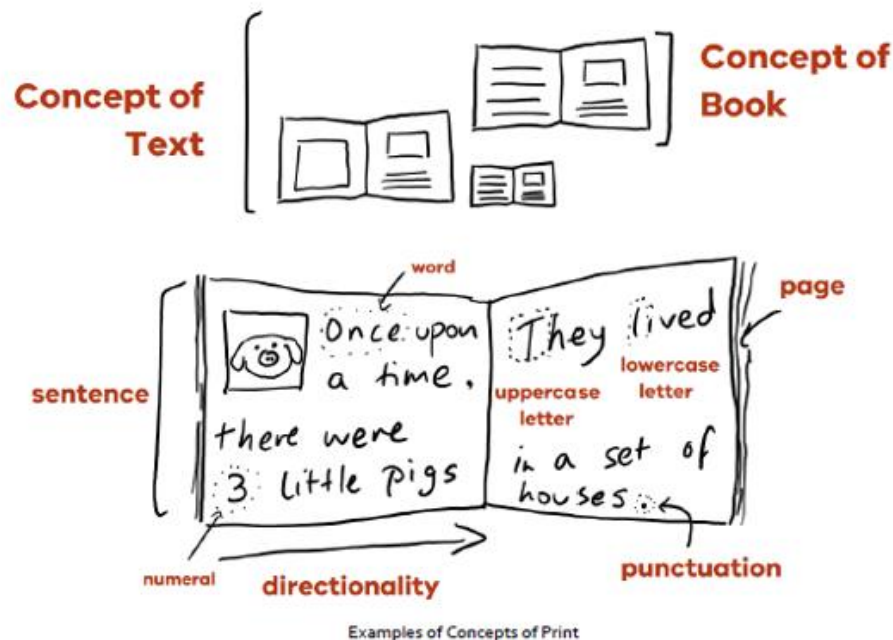 Concept of
Text
Concept of
Book
word
page
sentence
Once upon
a time.
there were
3 little pigs
They lived
uppercase
letter
lowercase
letter
in a set of
houses.
numeral
directionality
punctuation
Examples of Concepts of Print